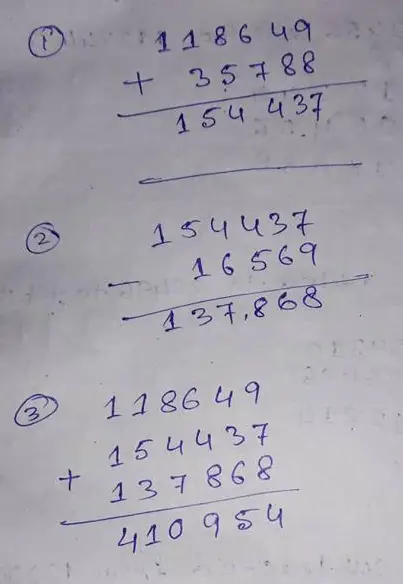 ① 118649
+ 35788
154437
② 154437
- 16569
137,868
③ 118649
154437
+ 137868
410954